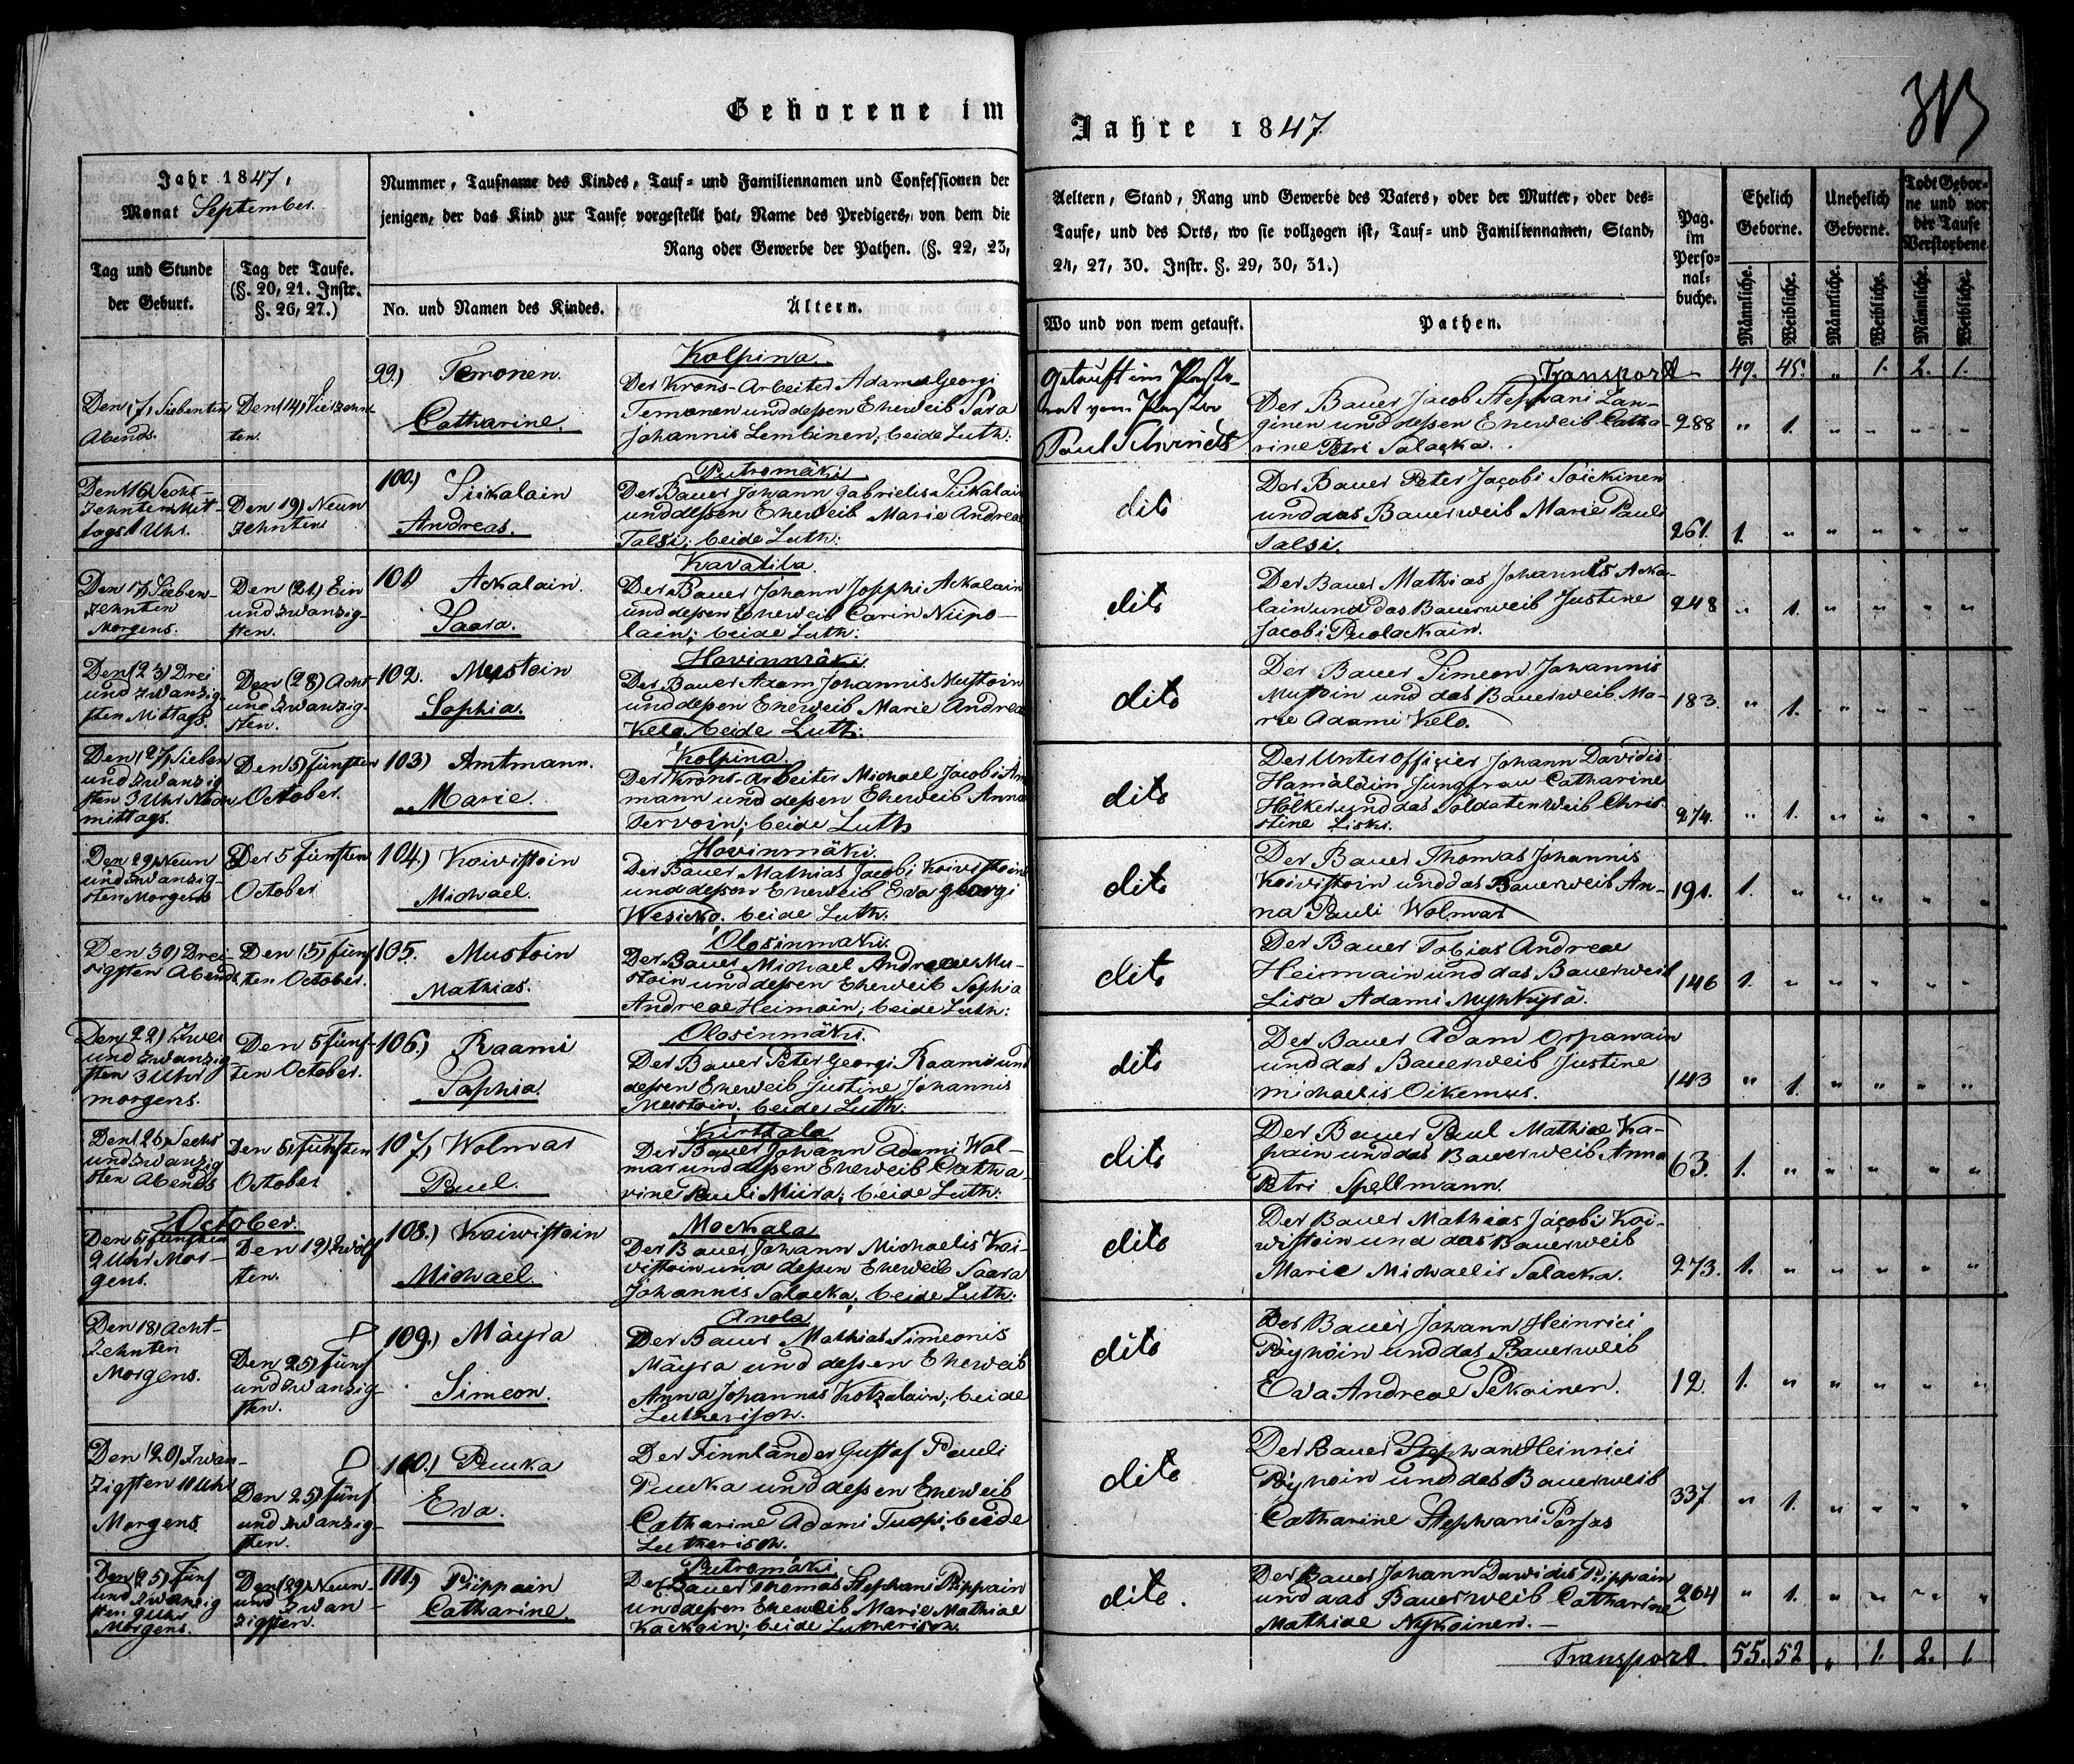 Geborene im
Jahre 1847.
313
Jahr 1847,
Monat September.
Nummer, Taufname des Kindes, Tauf- und Familiennamen und Confessionen der
jenigen, der das Kind zur Taufe vorgestellt hat, Name des Predigers, von dem die
Rang oder Gewerbe der Pathen. (§. 22, 23,
Tag und Stunde
der Geburt.
Tag der Taufe.
(§. 20, 21. Instr.
§. 26, 27.)
No. und Namen des Kindes.
Ältern.
Aeltern, Stand, Rang und Gewerbe des Vaters, oder der Mutter, oder des-
Taufe, und des Orts, wo sie vollzogen ist, Tauf- und Familiennamen, Stand,
24, 27, 30. Instr. §. 29, 30, 31.)
Wo und von wem getauft.
Pathen.
Pag.
im
Perso-
nal-
buche.
Ehelich
Geborne.
Unehelich
Geborne.
Todt Gebor-
ne und vor
der Taufe
Verstorbene
Männliche.
Weibliche.
Männliche.
Weibliche.
Männliche.
Weibliche.
Transport
49. 45. „ 1. 2. 1.
Den (7) Siebenten
Abends.
Den (14) Vierzehn-
ten.
99.) Temonen.
Catharine.
Kolpina.
Der Krons-Arbeiter Adam Georgi
Temonen und dessen Eheweib Sara
Johannis Lembinen; beide Luth:
Getauft im Pasto-
rat vom Pastor
Paul Schwindt
Der Bauer Jacob Stephani Lan-
ginen und dessen Eheweib Catha-
rine Petri Salacka.
288 „ 1. „ „ „ „
Den 16) Sechs-
zehnten Mit-
tags 1 Uhr.
Den 19) Neun
zehnten
100.) Siikalain
Andreas.
Putromäki
Der Bauer Johann Gabrielis Siikalain
und dessen Eheweib Marie Andreae
Talsi; beide Luth:
dito
Der Bauer Peter Jacobi Soickinen
und das Bauerweib Marie Pauli
Talsi.
261. 1. „ „ „ „ „
Den 17) Sieben-
zehnten
Morgens.
Den (21) Ein
und zwanzig-
sten.
101) Ackalain.
Saara.
Kavatila.
Der Bauer Johann Josphi Ackalain
und dessen Eheweib Carin Niipo-
lain; beide Luth:
dito
Der Bauer Mathias Johannis Acka-
lain und das Bauerweib Justine
Jacobi Puolackain.
248 „ 1. „ „ „ „
Den (23) Drei
und zwanzig-
sten Mittags.
Den (28) Acht
und zwanzig-
sten.
102. Mustoin
Sophia.
Hovinmäki
Der Bauer Adam Johannis Mustoin
und dessen Eheweib Marie Andreae
Kelo beide Luth:
dito
Der Bauer Simeon Johannis
Mustoin und das Bauerweib Ma-
rie Adami Kelo.
183. „ 1. „ „ „ „
Den (27) Sieben
und zwanzig
sten 3 Uhr Nach
mittags.
Den 5) Fünften
October.
103) Amtmann.
Marie.
Kolpina.
Der Krons-Arbeiter Michael Jacobi Am
mann und dessen Eheweib Anna
Tervoin; beide Luth
dito
Der Unterofficier Johann Davidis
Hamäläin Jungfrau Catharine
Hölker und das Soldatenweib Chris-
stine Liski.
274. „ 1. „ „ „ „
Den 29) Neun
und zwanzig-
sten Morgens
Der 5 Fünften
October
104.) Koivistoin
Michael.
Hovinmäki.
Der Bauer Mathias Jacobi Koivistoin
und dessen Eheweib Eva Georgi
Wesicko. beide Luth:
dito
Der Bauer Thomas Johannis
Koivistoin und das Bauerweib An-
na Pauli Wolmar
191. 1. „ „ „ „ „
Den 30) Drei-
sigsten Abends
Den (5) Fünf
ten October.
105. Mustoin
Mathias.
Olosinmäki.
Der Bauer Michael Andreae Mu-
stoin und dessen Eheweib Sophia
Andreae Heimain; beide Luth:
dito
Der Bauer Tobias Andreae
Heimain und das Bauerweib
Lisa Adami Nyhkyrä.
146 1. „ „ „ „ „
Den 22) Zwei
und zwanzig
sten 3 Uhr
morgens.
Den 5 Fünf-
ten October.
106.) Raami
Sophia.
Olosinmäki.
Der Bauer Peter Georgi Raami und
dessen Eheweib Justine Johannis
Mustoin. beide Luth:
dito
Der Bauer Adam Orpanain
und das Bauerweib Justine
Michaelis Oikemus.
143 „ 1. „ „ „ „
Den (26) Sechs
und zwanzig
sten Abends
Den 5) Fünften
October
107) Wolmar
Paul.
Kurttala
Der Bauer Johann Adami Wol-
mar und dessen Eheweib Catha-
rine Pauli Miira; beide Luth:
dito
Der Bauer Paul Mathiae Ka-
pain und das Bauerweib Anna
Petri Spellmann.
63. 1. „ „ „ „ „
October.
Den 5) Fünften
2 Uhr Mor-
gens.
Den 12) Zwölf
ten.
108.) Koiwistoin
Michael.
Mockala
Der Bauer Johann Michaelis Koi-
vistoin und dessen Eheweib Saara
Johannis Salacka; beide Luth:
dito
Der Bauer Mathias Jacobi Koi-
wistoin und das Bauerweib
Marie Michaelis Salacka.
273. 1. „ „ „ „ „
Den 18) Acht-
zehnten
Morgens.
Den 25) Fünf
und zwanzig-
sten.
109.) Mäyra
Simeon.
Anola
Der Bauer Mathias Simeonis
Mäyra und dessen Eheweib
Anna Johannes Kotzalain; beide
Lutherisch.
dito
Der Bauer Johann Heinrici
Pöyhöin und das Bauerweib
Eva Andreae Pekainen.
12. 1. „ „ „ „ „
Den (20) Zwan-
zigsten 11 Uhr
Morgens
Den 25) Fünf
und zwanzig-
sten.
110.) Puuka
Eva.
Der Finnländer Gustaf Pauli
Puuka und dessen Eheweib
Catharine Adami Tuapi; beide
Lutherisch.
dito
Der Bauer Stephan Heinrici
Pöyhöin und das Bauerweib
Catharine Stephani Porsas
337 „ 1. „ „ „ „
Den (25) Fünf
und zwanzig
sten 9 Uhr
Morgens.
Den (29) Neun-
und zwan-
zigsten.
111) Piippain
Catharine.
Putromäki
Der Bauer Thomas Stephani Piippain
und dessen Eheweib Marie Mathiae
Kackoin; beide Lutherisch.
dito.
Der Bauer Johann Davidis Piippain
und das Bauerweib Catharine
Mathiae Nykoinen.
264 „ 1. „ „ „ „
Transport. 55. 52 „ 1. 2. 1.